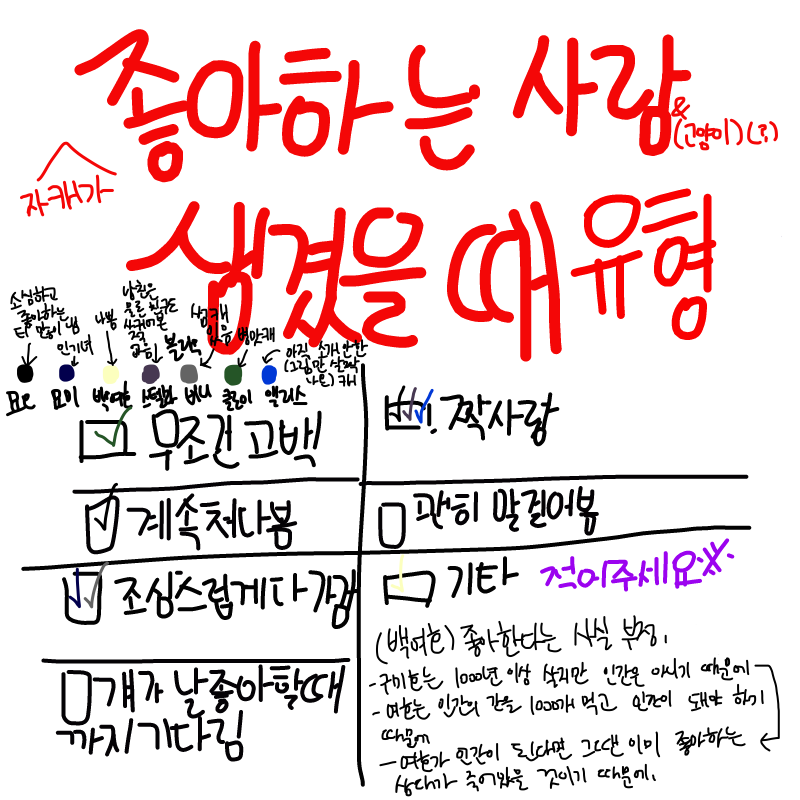 좋아하는 사람
&(고양이)(?)
자캐가
생겼을 때 유형
소심하고
좋아하는
티 많이 냄
인기녀
나쁨
남친은
없음
블라썸
성캐
있음
병맛캐
아직 소개 안한
(그림만 살짝
나온) 캐
요르 요미 백여흐 스텔라 버니 쿨린이 앨리스
무조건 고백
짝사랑
계속쳐다봄
괜히 말걸어봄
조심스럽게다가감
기타 적어주세요※
걔가 날좋아할때
까지기다림
(백여흐) 좋아한다는 사실 부정.
-구미호는 1000년 이상 살지만 인간은 아니기 때문에
-여흐는 인간의 간을 1000개 먹고 인간이 돼야 하기
때문에
-여흐가 인간이 된다면 그땐 이미 좋아하는
상대가 죽어있을 것이기 때문에.